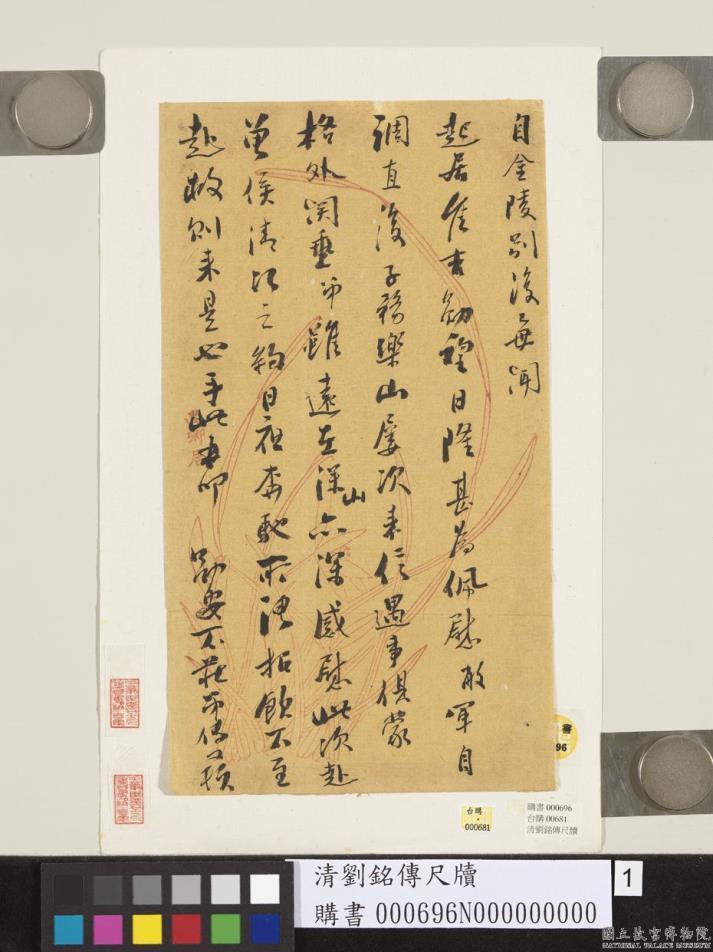 自金陵別後每聞
起居佳吉勛祺日隆甚為佩慰敝軍自
調直後子務樂山屢次來信遇事俱蒙
格外關垂弟雖遠在深山亦深感慰此次赴
曾侯清江之約日夜奔馳所
招飲不至
赴救則來是也手此布叩
勛安不莊弟傳頓
購書 96
台購 000681
購書 000696
台購 00681
清劉銘傳尺牘
清劉銘傳尺牘
購書 000696N000000000
1
國立故宮博物院
NATIONAL PALACE MUSEUM